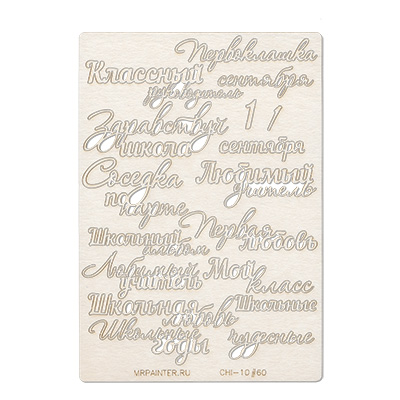 Первоклашка
Классный
сентября
руководитель
1 1
Здравствуй
школа
сентября
Соседка
Любимый
учитель
по
парте
Первая
Школьный
любовь
альбом
Любимый
Мой
учитель
класс
Школьная
Школьные
любовь
Школьные
чудесные
годы
MRPAINTER.RU CHI-10 #60